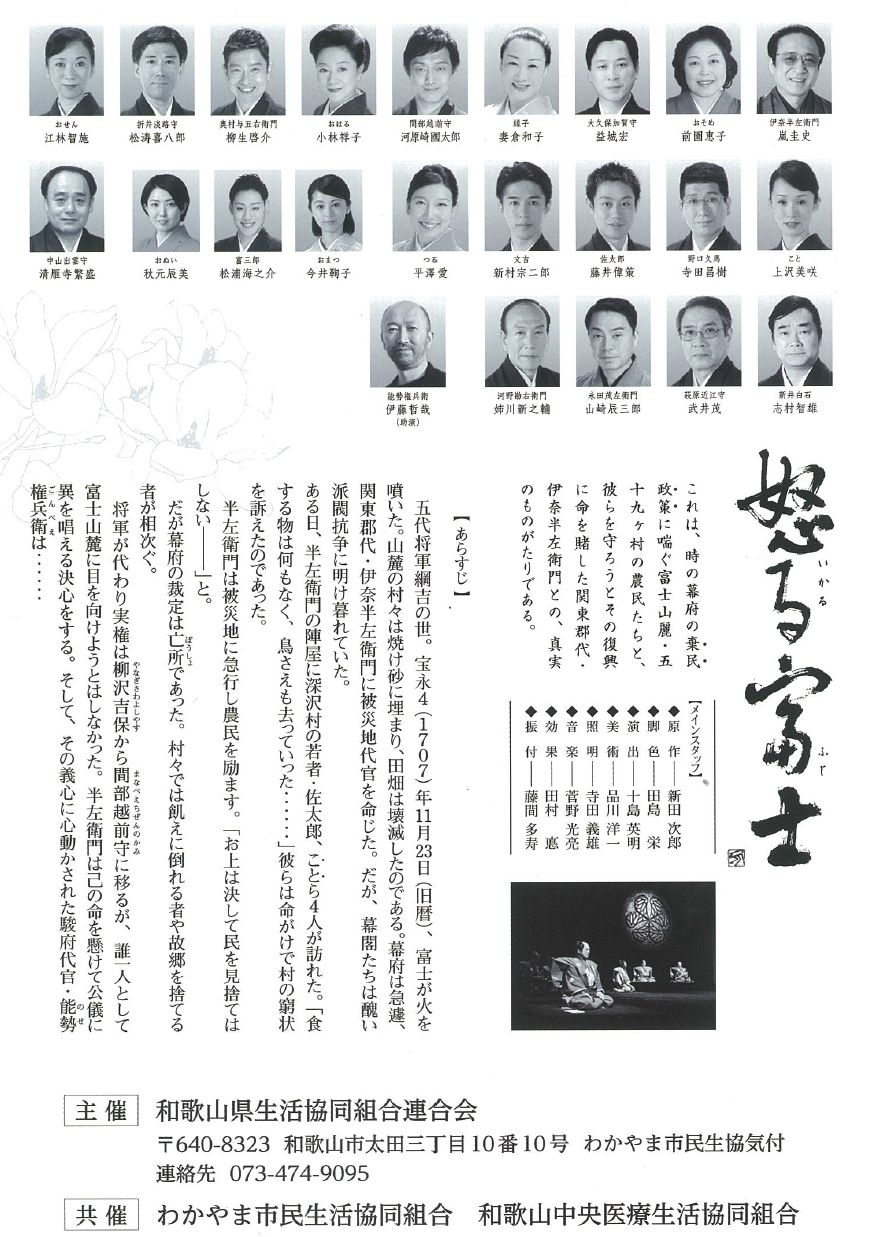 おせん
江林智施
折井淡路守
松涛喜八郎
奥村与五右衛門
柳生啓介
おはる
小林祥子
間部越前守
河原崎國太郎
縫子
妻倉和子
大久保加賀守
益城宏
おそめ
前園恵子
伊奈半左衛門
嵐圭史
中山出雲守
清雁寺繁盛
おぬい
秋元辰美
喜三郎
松浦海之介
おまつ
今井鞠子
つね
平澤愛
文吉
新村宗二郎
佐太郎
藤井偉策
野口久馬
寺田昌樹
こと
上沢美咲
能勢権兵衛
伊藤哲哉
(助演)
河野勘右衛門
姉川新之輔
永田茂左衛門
山崎辰三郎
萩原近江守
武井茂
新井白石
志村智雄
怒る富士
いかる
ふじ
これは、時の幕府の棄民
政策に喘ぐ富士山麓・五
十九ヶ村の農民たちと、
彼らを守ろうとその復興
に命を賭した関東郡代・
伊奈半左衛門との、真実
のものがたりである。
【メインスタッフ】
◆原作──新田次郎
◆脚色──田島 栄
◆演出──十島英明
◆美術──品川洋一
◆照明──寺田義雄
◆音楽──菅野光亮
◆効果──田村 悳
◆振付──藤間多寿
【あらすじ】
五代将軍綱吉の世。宝永4(1707)年11月23日(旧暦)、富士が火を
噴いた。山麓の村々は焼け砂に埋まり、田畑は壊滅したのである。幕府は急遽、
関東郡代・伊奈半左衛門に被災地代官を命じた。だが、幕閣たちは醜い
派閥抗争に明け暮れていた。
ある日、半左衛門の陣屋に深沢村の若者・佐太郎、ことら4人が訪れた。「食
する物は何もなく、鳥さえも去っていった・・・・・」彼らは命がけで村の窮状
を訴えたのであった。
半左衛門は被災地に急行し農民を励ます。「お上は決して民を見捨ては
しない──」と。
だが幕府の裁定は亡所であった。村々では飢えに倒れる者や故郷を捨てる
ぼうしょ
者が相次ぐ。
将軍が代わり実権は柳沢吉保から間部越前守に移るが、誰一人として
やなぎさわよしやす
まなべえちぜんのかみ
富士山麓に目を向けようとはしなかった。半左衛門は己の命を懸けて公儀に
異を唱える決心をする。そして、その義心に心動かされた駿府代官・能勢
のせ
権兵衛は・・・・・
ごんべえ
主催 和歌山県生活協同組合連合会
〒640-8323 和歌山市太田三丁目10番10号 わかやま市民生協気付
連絡先 073-474-9095
共催 わかやま市民生活協同組合 和歌山中央医療生活協同組合